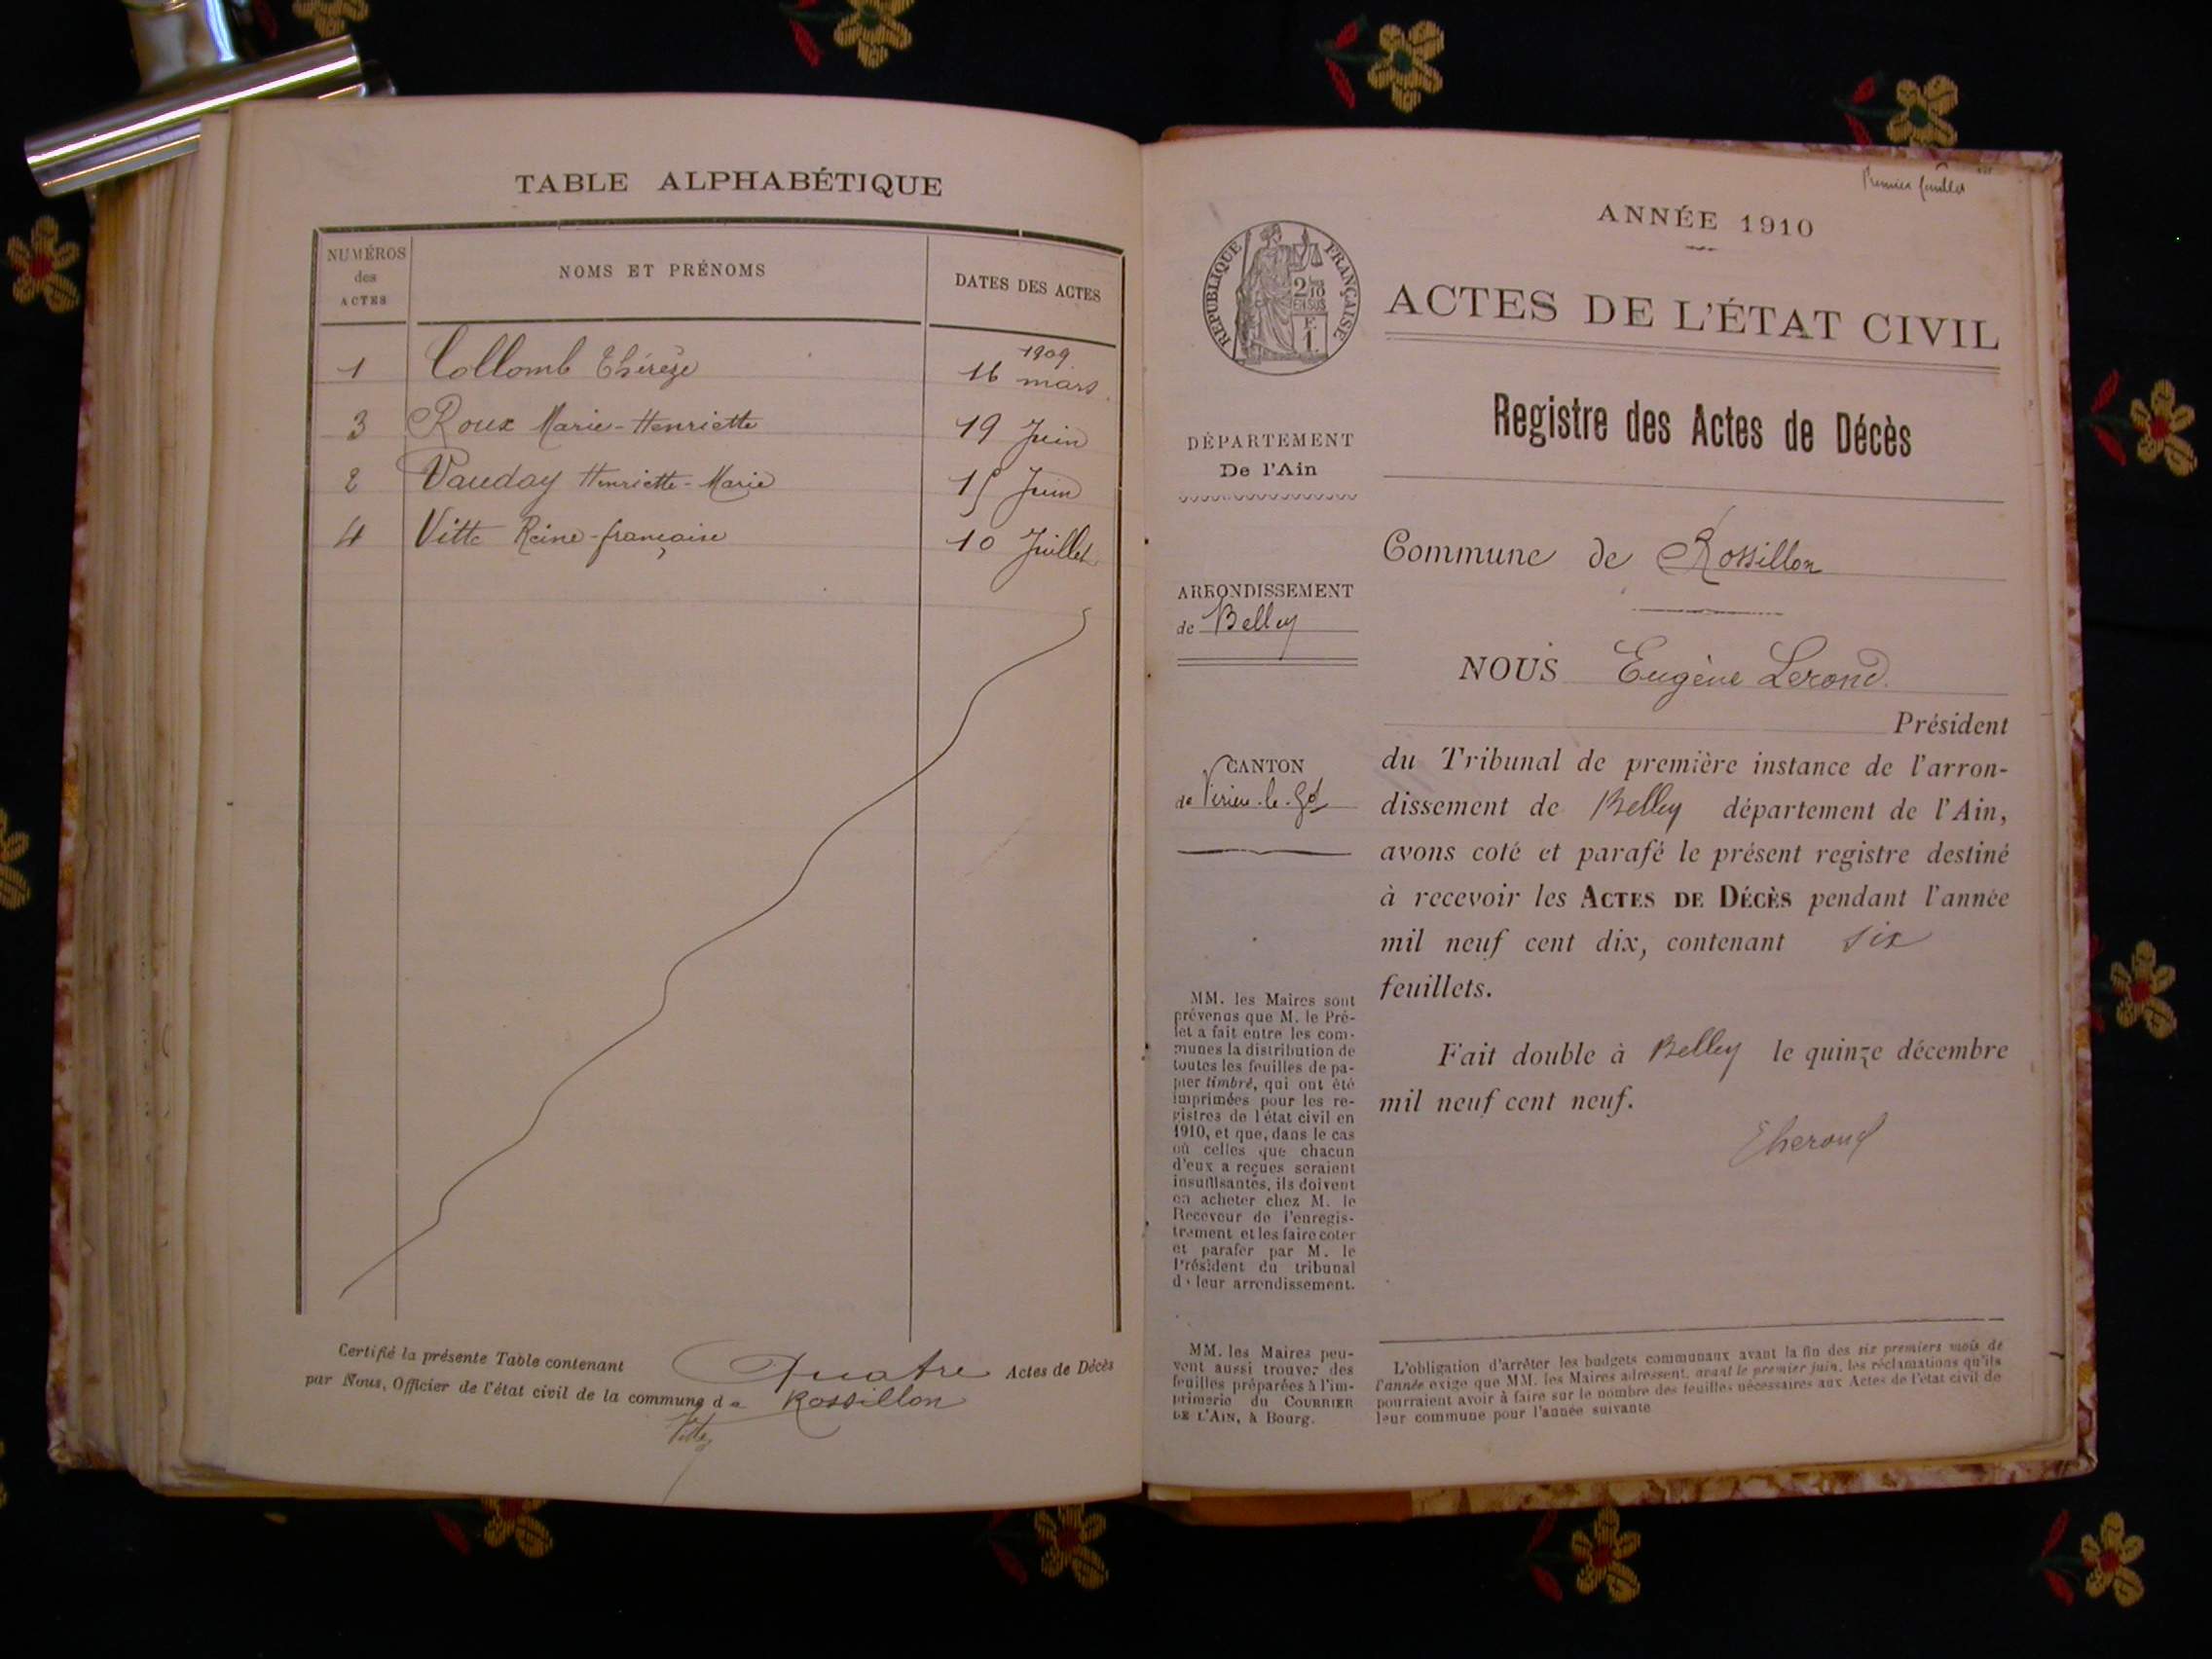 TABLE ALPHABÉTIQUE
NUMÉROS
des
ACTES
NOMS ET PRÉNOMS
DATES DES ACTES
1909
1 Collomb Thérèze 16 mars
3 Roux Marie-Henriette 19 Juin
2 Vauday Henriette-Marie 15 Juin
4 Vitte Reine-françoise 10 Juillet
Certifié la présente Table contenant Quatre Actes de Décès
par Nous, Officier de l'état civil de la commune de Rossillon
Premier feuillet
ANNÉE 1910
RÉPUBLIQUE FRANÇAISE
2/10
EN SUS
F.
1.
ACTES DE L'ÉTAT CIVIL
Registre des Actes de Décès
DÉPARTEMENT
De l'Ain
Commune de Rossillon
ARRONDISSEMENT
de Belley
NOUS Eugène Lerond
Président
CANTON
de Virieu-le-Gd
du Tribunal de première instance de l'arron-
dissement de Belley département de l'Ain,
avons coté et parafé le présent registre destiné
à recevoir les ACTES DE DÉCÈS pendant l'année
mil neuf cent dix, contenant six
feuillets.
Fait double à Belley le quinze décembre
mil neuf cent neuf.
MM. les Maires sont
prévenus que M. le Pré-
fet a fait entre les com-
munes la distribution de
toutes les feuilles de pa-
pier timbré, qui ont été
imprimées pour les re-
gistres de l'état civil en
1910, et que, dans le cas
où celles que chacun
d'eux a reçues seraient
insuffisantes, ils doivent
en acheter chez M. le
Receveur de l'enregis-
trement et les faire coter
et parafer par M. le
Président du tribunal
de leur arrondissement.
MM. les Maires peu-
vent aussi trouver des
feuilles préparées à l'im-
primerie du COURRIER
DE L'AIN, à Bourg.
L'obligation d'arrêter les budgets communaux avant la fin des six premiers mois de
l'année exige que MM. les Maires adressent, avant le premier juin, les réclamations qu'ils
pourraient avoir à faire sur le nombre des feuilles nécessaires aux Actes de l'état civil de
leur commune pour l'année suivante